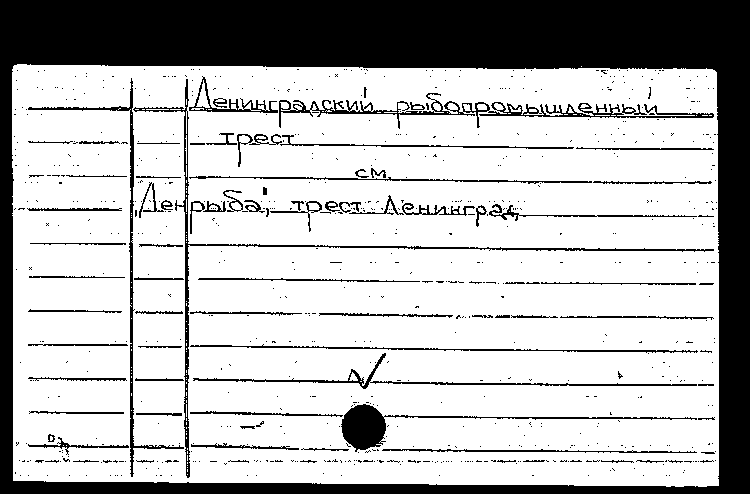 Ленинградский рыбопромышленный
трест
см.
"Ленрыба", трест. Ленинград.